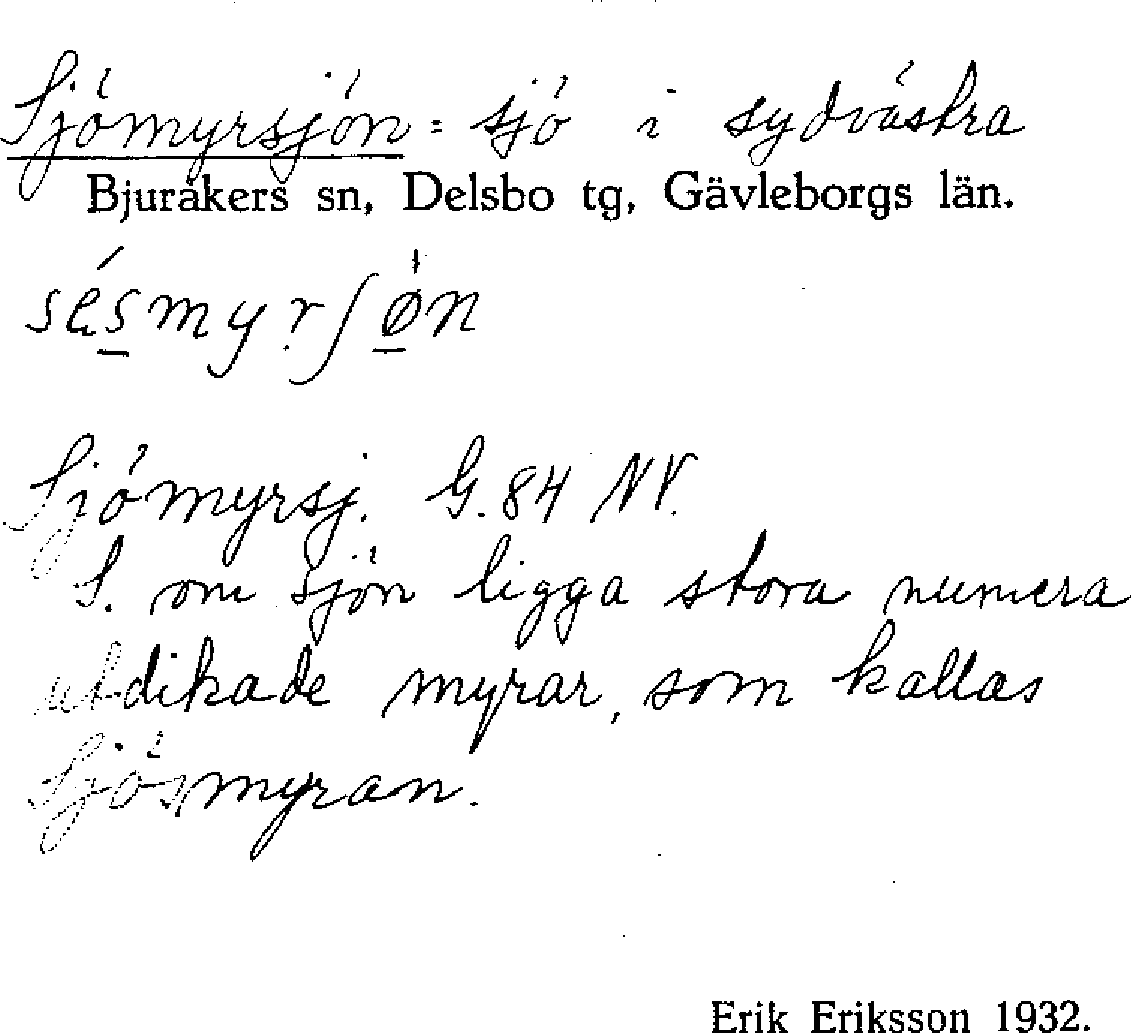 Sjömyrsjön = sjö i sydvästra
Bjuråkers sn, Delsbo tg, Gävleborgs län.
sésmyrʃø̱n
Sjömyrsj. G. 84 NV.
S. om sjön ligga stora numera
utdikade myrar, som kallas
Sjösmyran.
Erik Eriksson 1932.